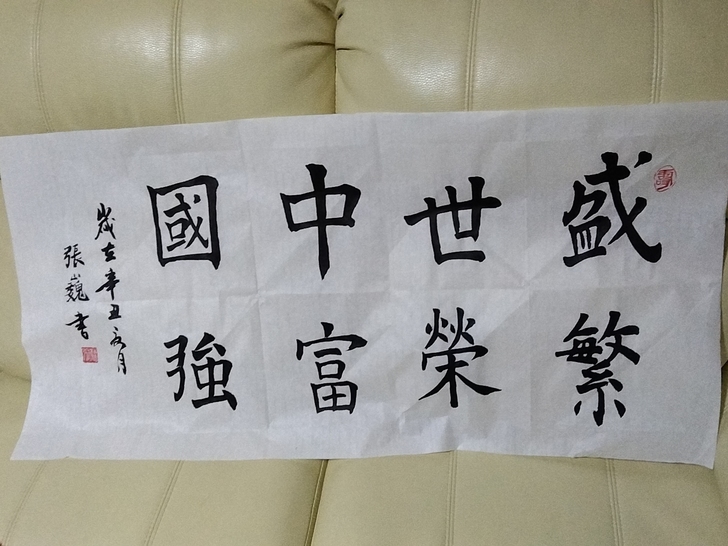 盛世中國
繁榮富強
歲在辛丑月
張巍書